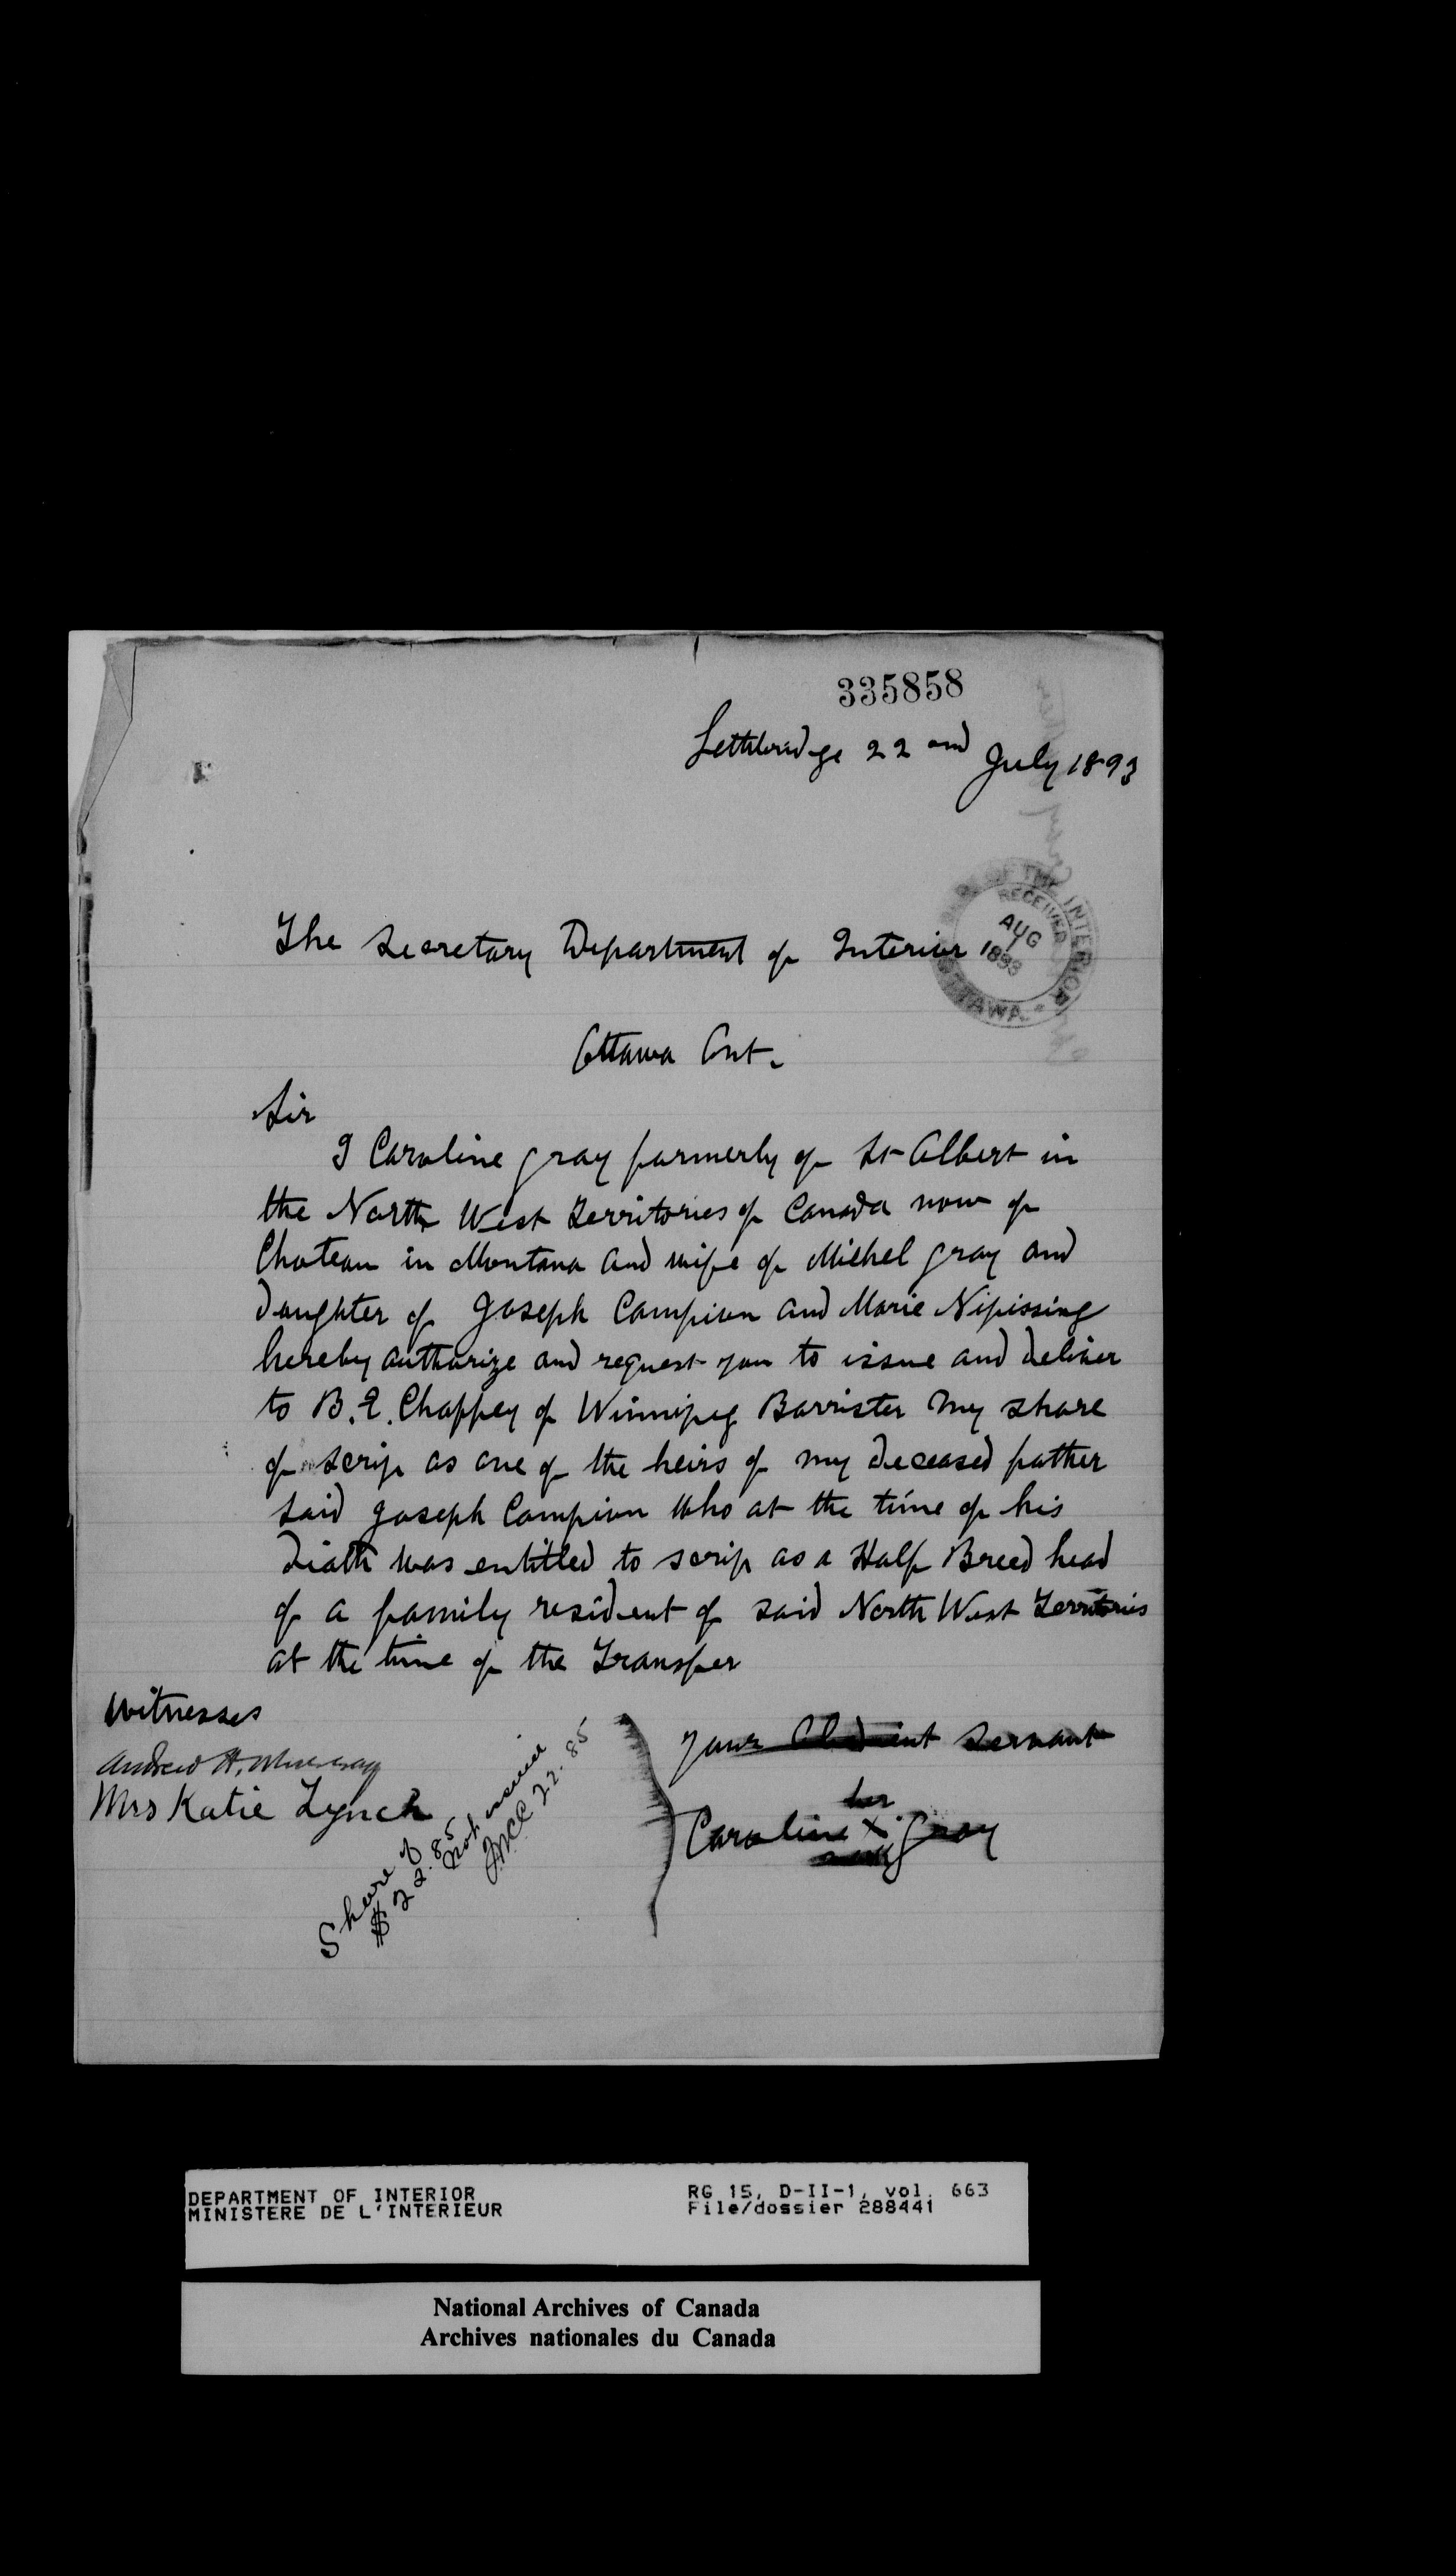 335858
Lethbridge 22nd July 1893
OF THE INTERIOR
RECEIVED
AUG
1
1893
OTTAWA
The Secretary Department of Interior
Ottawa Ont.
Sir
I Caroline Gray formerly of St Albert in
the North West Territories of Canada now of
Choteau in Montana and wife of Michel Gray and
daughter of Joseph Campion and Marie Nipissing
hereby authorize and request you to issue and deliver
to B. E. Chaffey of Winnipeg Barrister my share
of scrip as one of the heirs of my deceased father
said Joseph Campion who at the time of his
death was entitled to scrip as a Half Breed head
of a family resident of said North West Territories
at the time of the Transfer
Witnesses
Andrew H.
Mrs Katie Lynch
Your Obedient Servant
her
Caroline X Gray
mark
Share of
$22.85
not
22.85
DEPARTMENT OF INTERIOR
MINISTERE DE L'INTERIEUR
RG 15, D-II-1, vol. 663
File/dossier 288441
National Archives of Canada
Archives nationales du Canada